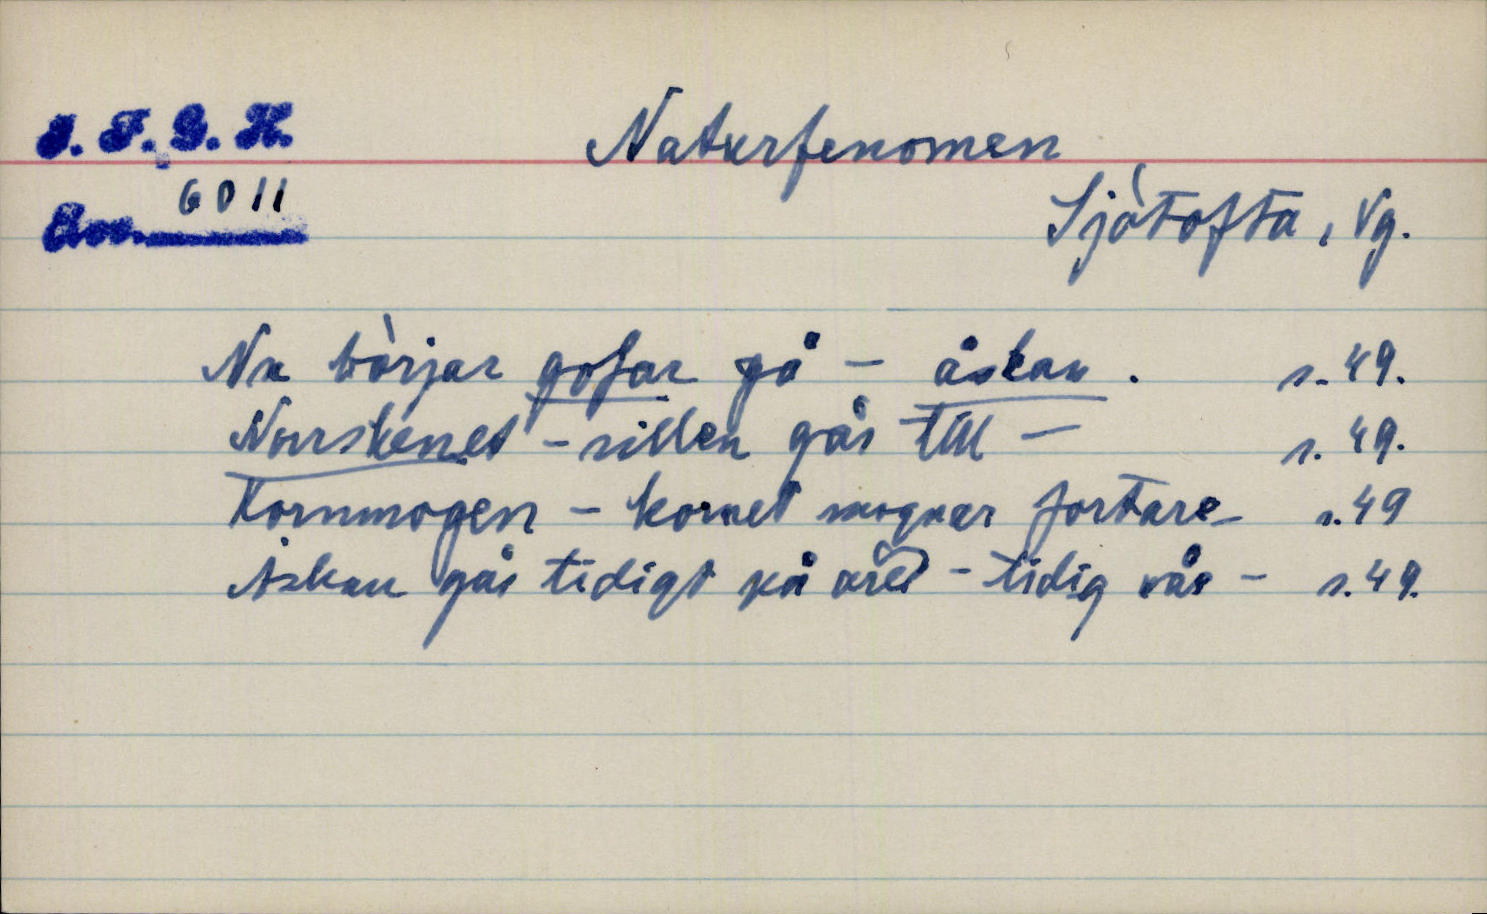 I. F. G. H.
Naturfenomen
Acc. 6011
Sjötofta, Vg.
Nu börjar gofar gå – åskan. s. 49.
Norrskenet – sillen går till – s. 49.
Kornmogen – kornet mognar fortare – s. 49
Åskan går tidigt på året – tidig vår – s. 49.